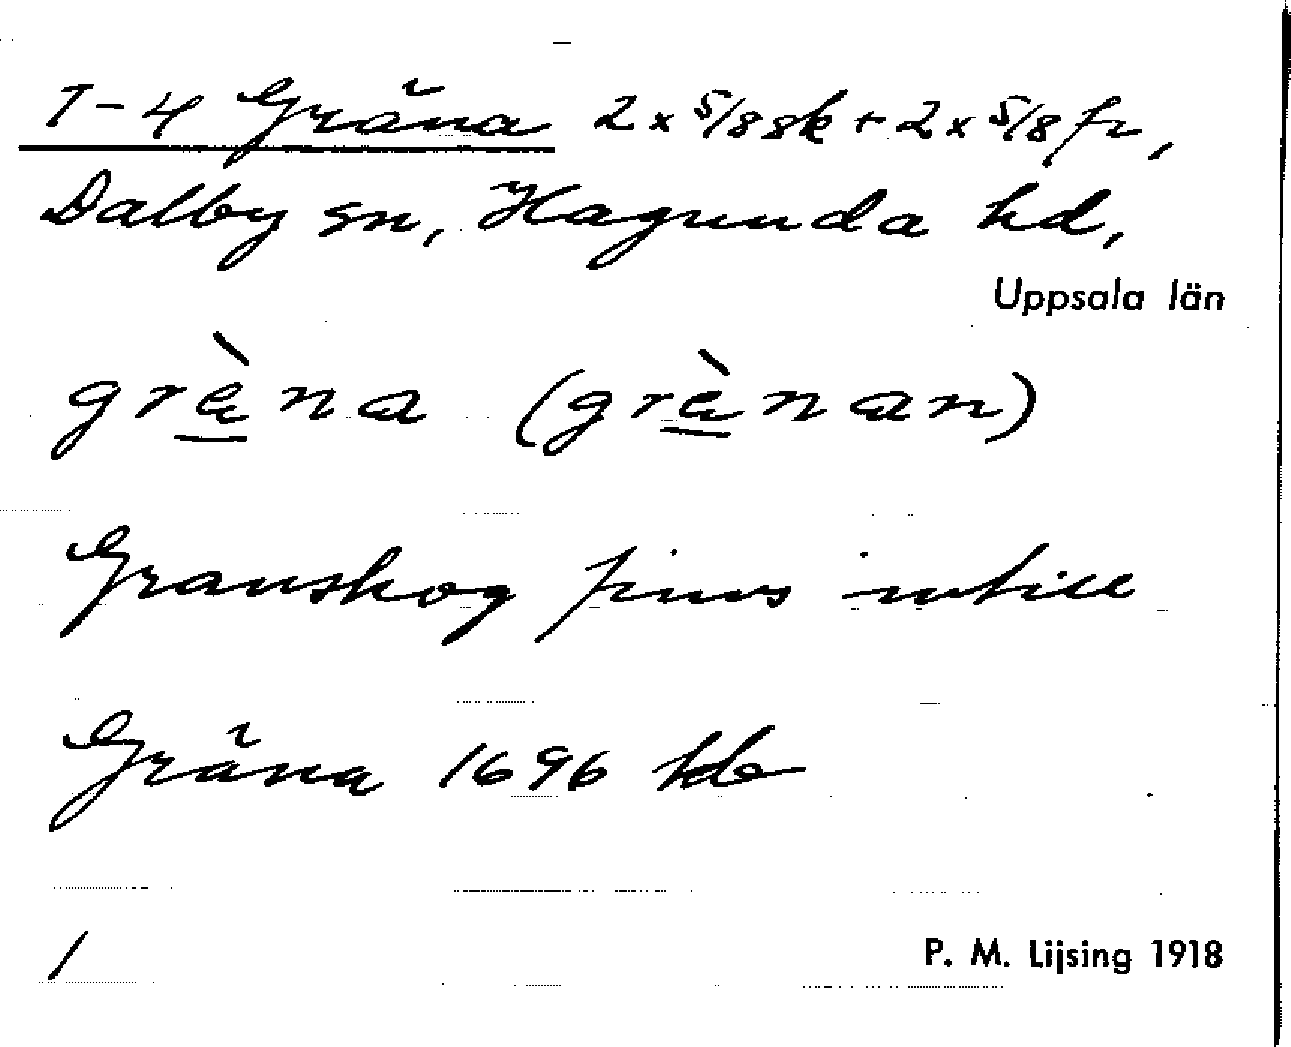 1-4 Gräna 2 x 5/8 sk + 2 x 5/8 fr,
Dalby sn, Hagunda hd,
Uppsala län
grèna (grènan)
Granskog finns intill
Gräna 1696 Jdb
1
P. M. Lijsing 1918